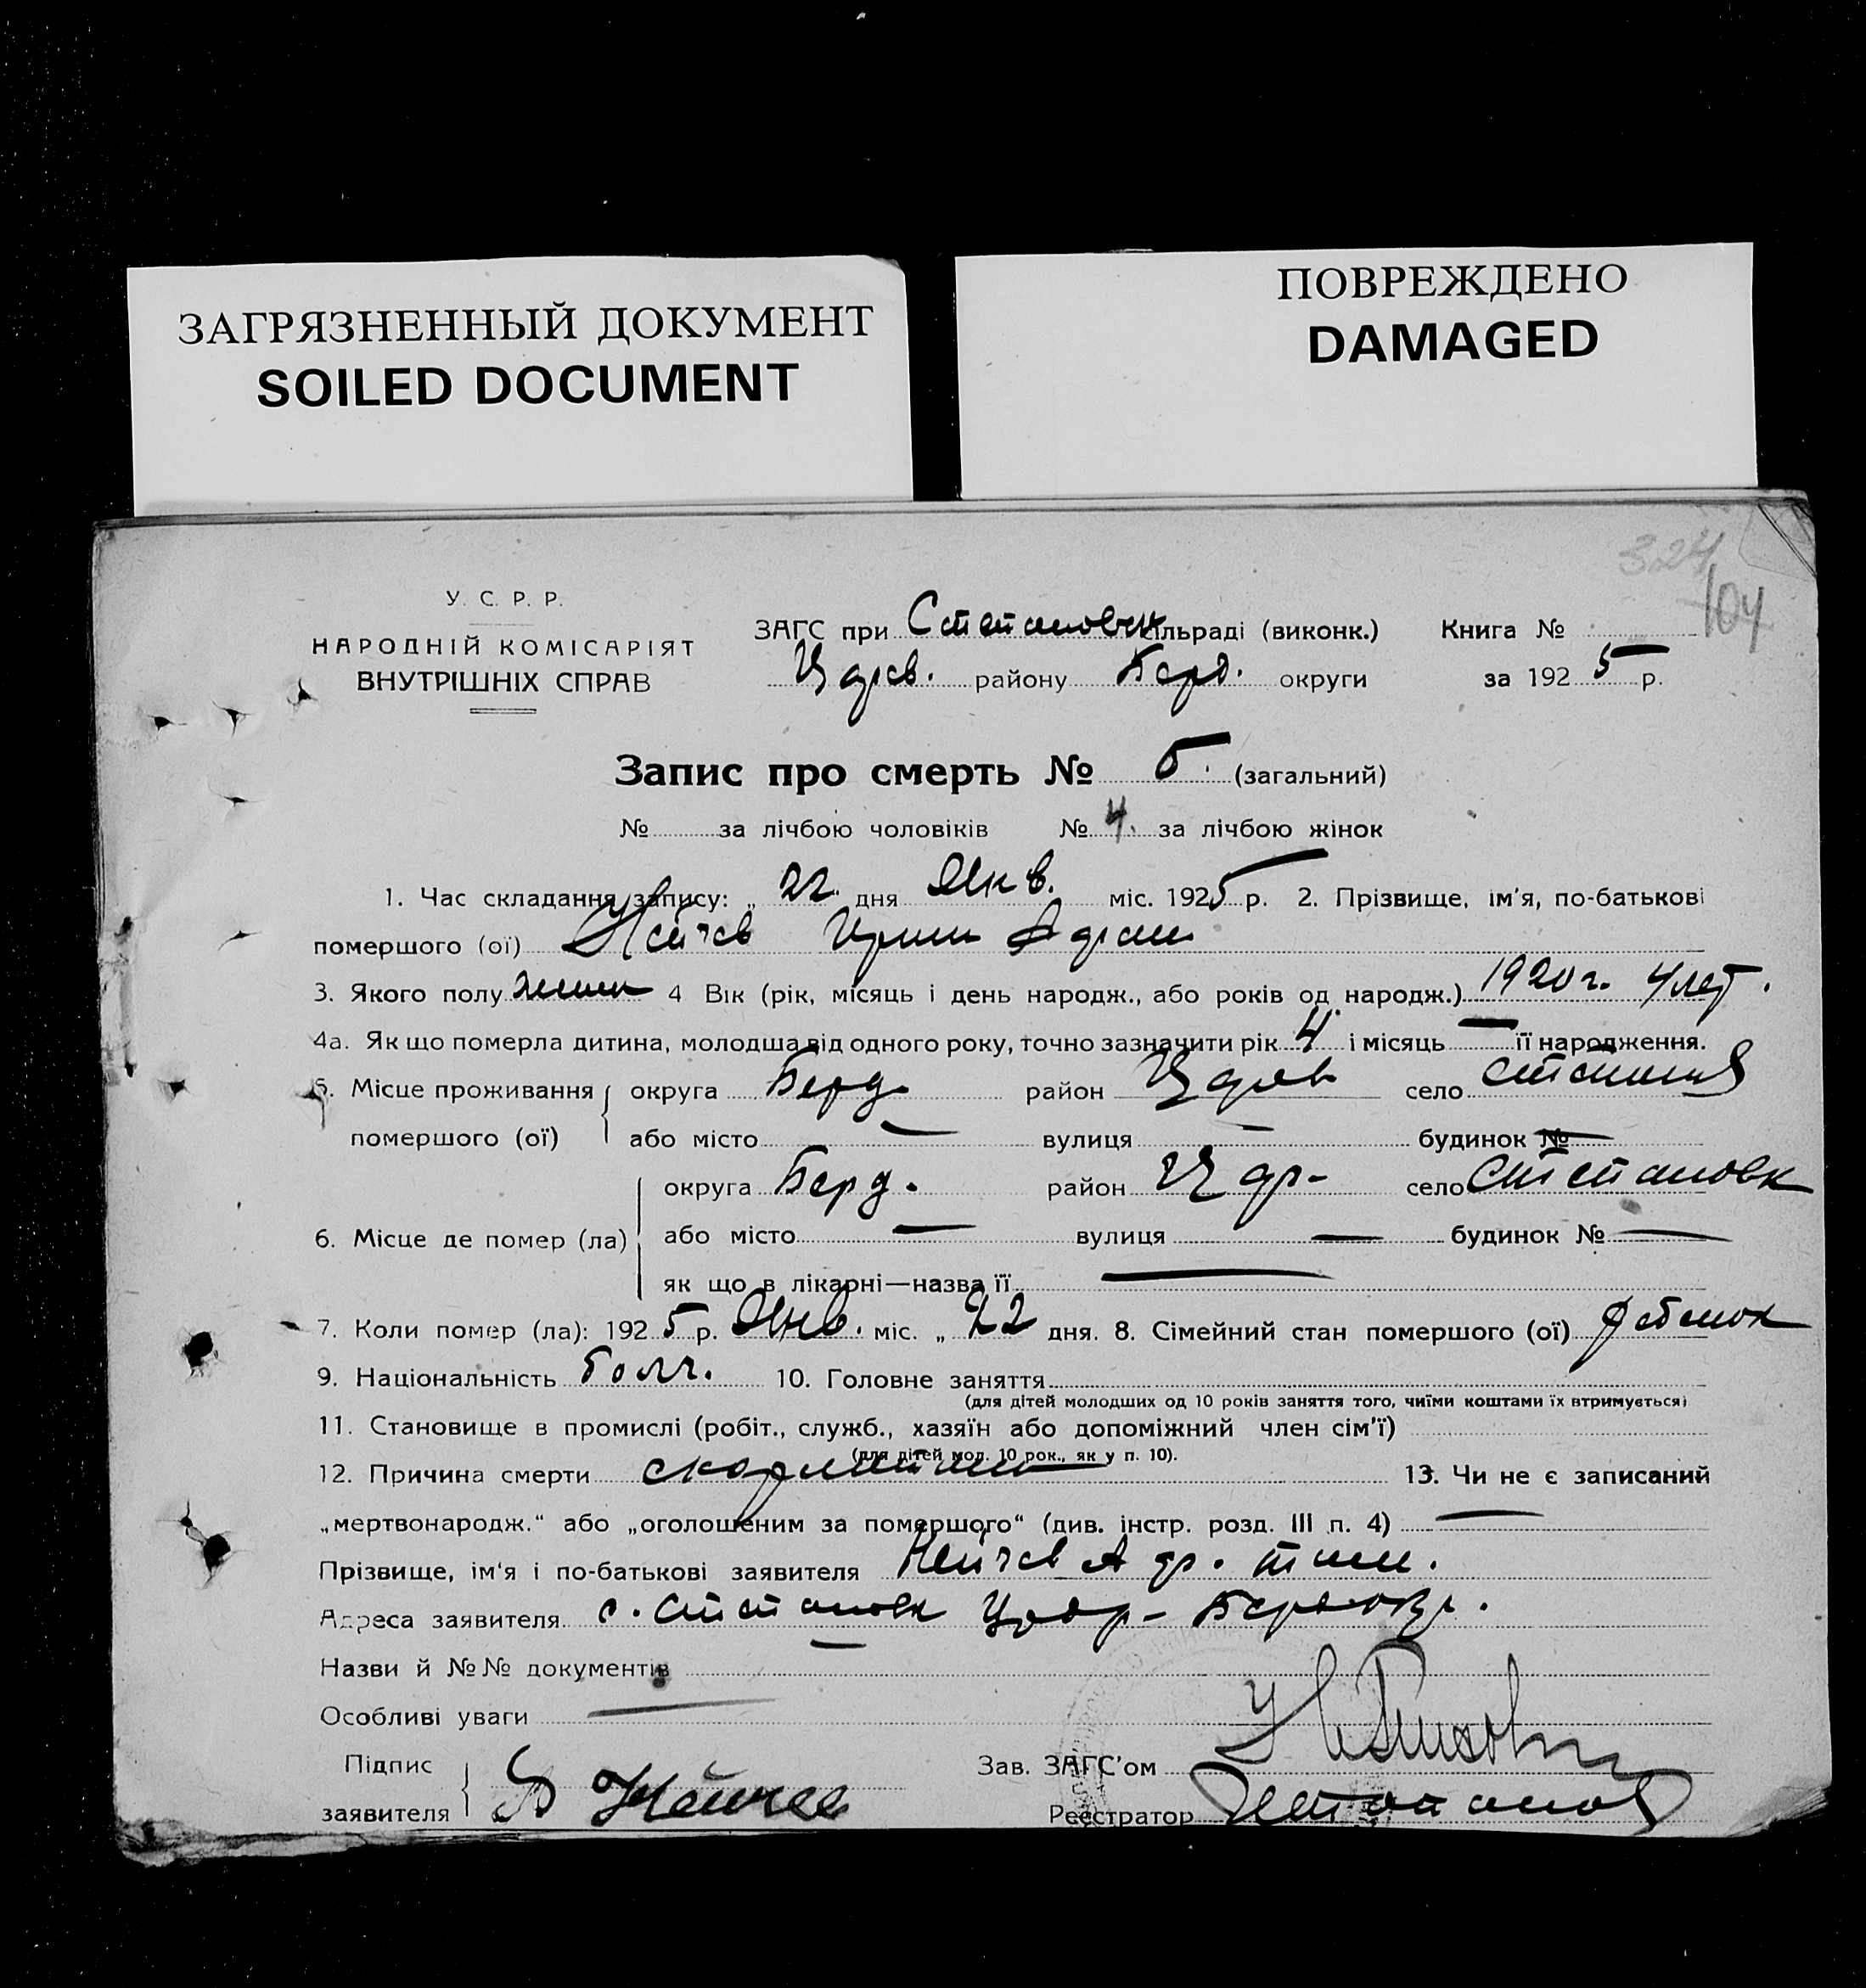 ЗАГРЯЗНЕННЫЙ ДОКУМЕНТ
SOILED DOCUMENT
ПОВРЕЖДЕНО
DAMAGED
324
104
У. С. Р. Р.
НАРОДНІЙ КОМІСАРІЯТ
ВНУТРІШНІХ СПРАВ
ЗАГС при Степановск сільраді (виконк.) Книга №
району Берд. округи за 1925 р.
Запис про смерть № 5. (загальний)
№ за лічбою чоловіків № 4. за лічбою жінок
1. Час складання запису: „ 22. дня Янв. міс. 1925 р. 2. Прізвище, ім'я, по-батькові
помершого (ої) Нейчев
3. Якого полу женск 4 Вік (рік, місяць і день народж., або років од народж.) 1920 г. 4 лет.
4а. Як що померла дитина, молодша від одного року, точно зазначити рік 4 і місяць — її народження.
5. Місце проживання округа Берд. район село
помершого (ої) або місто — вулиця — будинок № —
округа Берд. район село Степановк
6. Місце де помер (ла) або місто — вулиця — будинок № —
як що в лікарні—назва її —
7. Коли помер (ла): 1925 р. Янв. міс. „ 22 дня. 8. Сімейний стан помершого (ої) ребенок
9. Національність болг. 10. Головне заняття
(для дітей молодших од 10 років заняття того, чиїми коштами їх втримується)
11. Становище в промислі (робіт., служб., хазяїн або допоміжний член сім'ї)
(для дітей мол. 10 рок., як у п. 10).
12. Причина смерти скарлатина 13. Чи не є записаний
„мертвонародж.“ або „оголошеним за помершого“ (див. інстр. розд. III п. 4) —
Прізвище, ім'я і по-батькові заявителя Нейчев
Адреса заявителя с. Степановк
Назви й №№ документів —
Особливі уваги —
Підпис
заявителя Нейчев
Зав. ЗАГС'ом
Реєстратор